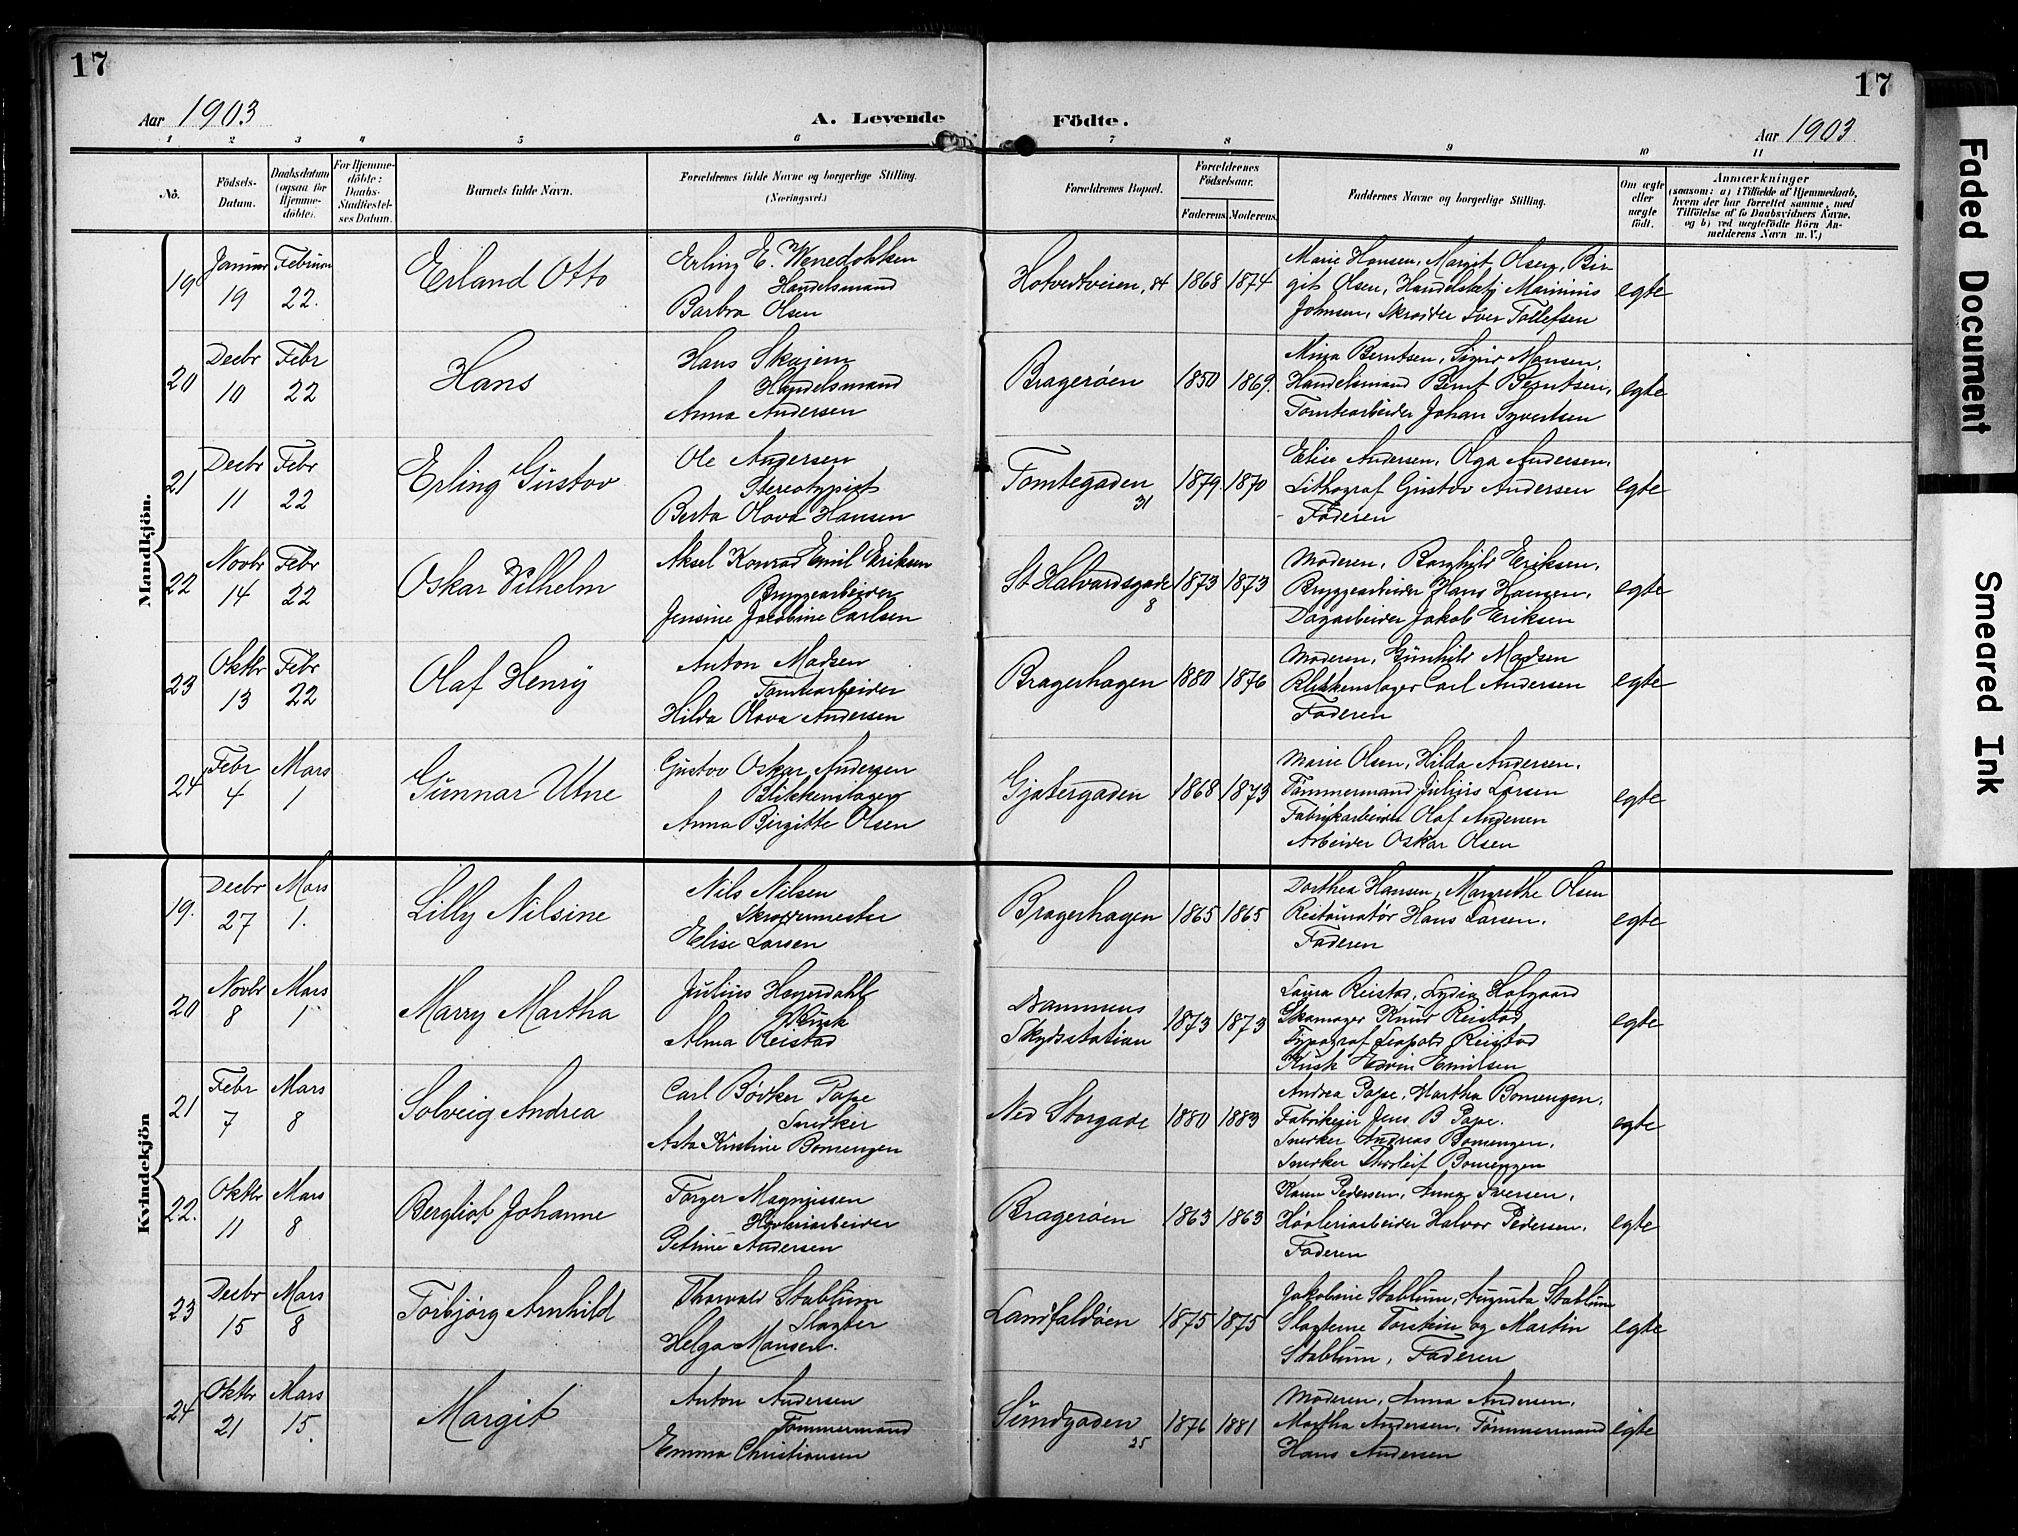 17
17
Aar 1903
A. Levende
Födte.
Aar 1903
1 2 3 4 5 6 7 8 9 10 11
No.
Födsels-
Datum.
Daabsdatum
(ogsaa for
Hjemme-
döbte).
For Hjemme-
döbte:
Daabs-
Stadfæstel-
ses Datum.
Barnets fulde Navn.
Forældrenes fulde Navne og borgerlige Stilling.
(Næringsvei.)
Forældrenes Bopæl.
Forældrenes
Födselsaar.
Faderens. Moderens.
Faddernes Navne og borgerlige Stilling.
Om ægte
eller
uægte
födt.
Anmærkninger
(saasom: a) i Tilfælde af Hjemmedaab,
hvem der har forrettet samme, med
Tilföielse af to Daabsvidners Navne,
og b) ved uægtefödte Börn An-
melderens Navn m. V.)
Mandkjön.
19
Januar
19
Februar
22.
Erland Otto
Erling E. Wenedikksen
Handelsmand
Barbra Olsen
Hotvedtveien, 84
1868 1874
Marie Hansen, Margit Olsen, Bir
git Olsen, Handelsbetj Marinius
Johnsen, Skræder Iver Tollefsen
egte
20
Decbr
10
Febr
22
Hans
Hans Skajem
Handelsmand
Anna Andersen
Bragerøen
1850 1869.
Mina Berntsen, Sigrid Monsen,
Handelsmand Bernt Berntsen,
Tomtearbeider Johan Syvertsen
egte
21
Decbr
11
Febr
22
Erling Gustav
Ole Andersen
Stereotypist
Berta Olava Hansen
Tomtegaden
31
1879. 1870
Elise Andersen, Olga Andersen,
Lithograf Gustav Andersen
Faderen
egte
22
Novbr
14
Febr
22
Oskar Vilhelm
Aksel Konrad Emil Eriksen
Bryggearbeider
Jensine Jacobine Carlsen
St Halvardsgade
8
1873 1873
Moderen, Borghild Eriksen,
Bryggearbeider Hans Hansen,
Dagarbeider Jakob Eriksen
egte
23
Oktbr
13
Febr
22
Olaf Henry
Anton Madsen
Tomtearbeider
Hilda Olava Andersen
Bragerhagen
1880 1876
Moderen, Gunhild Madsen
Blikkenslager Carl Andersen
Faderen
egte
24
Febr
4
Mars
1
Gunnar Utne
Gustav Oskar Andersen
Blikkenslager
Anna Birgitte Olsen
Gjetergaden
1868 1873
Marie Olsen, Hilda Andersen,
Tømmermand Julius Larsen
Fabrikarbeider Olaf Andersen
Arbeider Oskar Olsen
egte
Kvindekjön
19.
Decbr
27
Mars
1.
Lilly Nilsine
Nils Nilsen
Skræddermester
Elise Larsen
Bragerhagen
1865 1865
Dorthea Hansen, Margrethe Olsen
Restauratør Hans Larsen,
Faderen
egte
20
Novbr
8
Mars
1
Marry Martha
Julius Heyerdahl
Kusk
Alma Reistad
Drammens
Skydsstation
1873 1873
Laura Reistad, Lydia Hofgaard
Skomager Knud Reistad
Typograf Leopold Reistad
Kusk Edvin Emilsen
egte
21
Febr
7
Mars
8
Solveig Andrea
Carl Bødker Pape
Snedker
Asta Kristine Bomengen
Ned Storgade
1880 1883
Andrea Pape, Martha Bomengen,
Fabrikeier Jens B Pape.
Snedker Andreas Bomengen,
Snedker Thorleif Bomengen
egte
22.
Oktbr
11
Mars
8
Bergliot Johanne
Torger Magnussen
Høvleriarbeider
Petrine Andersen
Bragerøen
1863 1863
Karen Pedersen, Anna Iversen,
Høvleriarbeider Halvor Pedersen,
Faderen
egte
23
Decbr
15
Mars
8
Torbjørg Arnhild
Thorvald Stablum
Slagter
Helga Monsen.
Landfaldøen
1875 1875
Jakobine Stablum, Augusta Stablum
Slagterne Torstein og Martin
Stablum, Faderen
egte
24
Oktbr
21
Mars
15.
Margit
Anton Andersen
Tømmermand
Emma Christiansen
Sundgaden
25
1876 1881
Moderen, Anna Andersen,
Martha Andersen, Tømmermand
Hans Andersen
egte
Faded Document
Smeared Ink